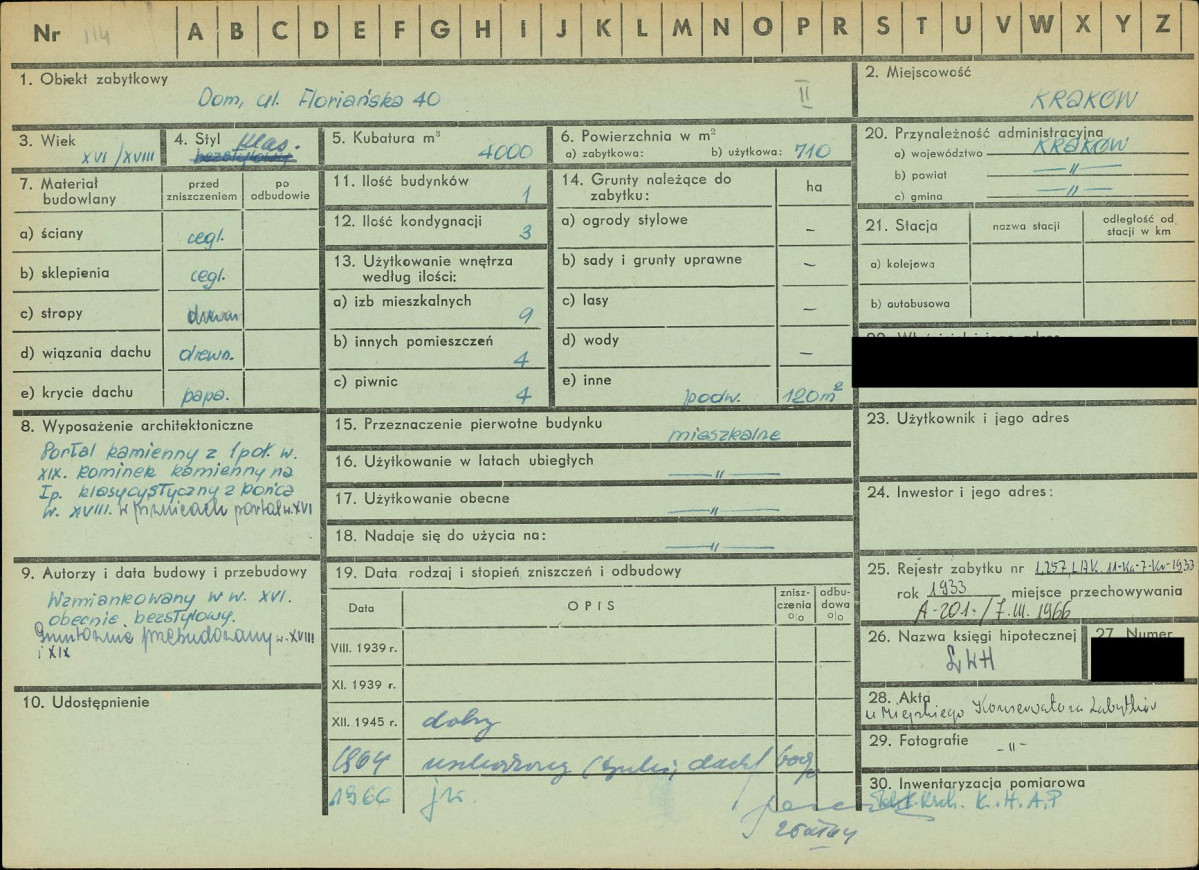 Nr 114 A B C D E F G H I J K L M N O P R S T U V W X Y Z
1. Obiekt zabytkowy
Dom, ul. Floriańska 40 II
2. Miejscowość
KRAKÓW
3. Wiek
XVI/XVIII
4. Styl klas.
bezstylowy
5. Kubatura m³
4000
6. Powierzchnia w m²
a) zabytkowa: b) użytkowa: 710
20. Przynależność administracyjna
a) województwo KRAKÓW
b) powiat —〃—
c) gmina —〃—
7. Materiał budowlany
przed zniszczeniem
po odbudowie
a) ściany cegl.
b) sklepienia cegl.
c) stropy drewn
d) wiązania dachu drewn.
e) krycie dachu papa.
11. Ilość budynków
1
12. Ilość kondygnacji
3
13. Użytkowanie wnętrza
według ilości:
a) izb mieszkalnych
9
b) innych pomieszczeń
4
c) piwnic
4
14. Grunty należące do
zabytku:
ha
a) ogrody stylowe –
b) sady i grunty uprawne –
c) lasy –
d) wody –
e) inne
podw. 120m²
21. Stacja
nazwa stacji
odległość od
stacji w km
a) kolejowa
b) autobusowa
8. Wyposażenie architektoniczne
Portal kamienny z 1 poł. w.
XIX. kominek kamienny na
I p. klasycystyczny z końca
w. XVIII. w piwnicach portal w. XVI
15. Przeznaczenie pierwotne budynku
mieszkalne
16. Użytkowanie w latach ubiegłych
—〃—
17. Użytkowanie obecne
—〃—
18. Nadaje się do użycia na:
—〃—
23. Użytkownik i jego adres
24. Inwestor i jego adres:
9. Autorzy i data budowy i przebudowy
Wzmiankowany w w. XVI.
obecnie bezstylowy.
Gruntownie przebudowany w. XVIII
i XIX
10. Udostępnienie
19. Data rodzaj i stopień zniszczeń i odbudowy
Data
OPIS
znisz-
czenia
%
odbu-
dowa
%
VIII. 1939 r.
XI. 1939 r.
XII. 1945 r. dobry
1964 uszkodzony (tynki, dach)
1966 jw.
25. Rejestr zabytku nr
rok 1933 miejsce przechowywania
A-201/7.III.1966
26. Nazwa księgi hipotecznej
LWH
27. Numer
28. Akta
u Miejskiego Konserwatora Zabytków
29. Fotografie
-〃-
30. Inwentaryzacja pomiarowa
K.H.A.P